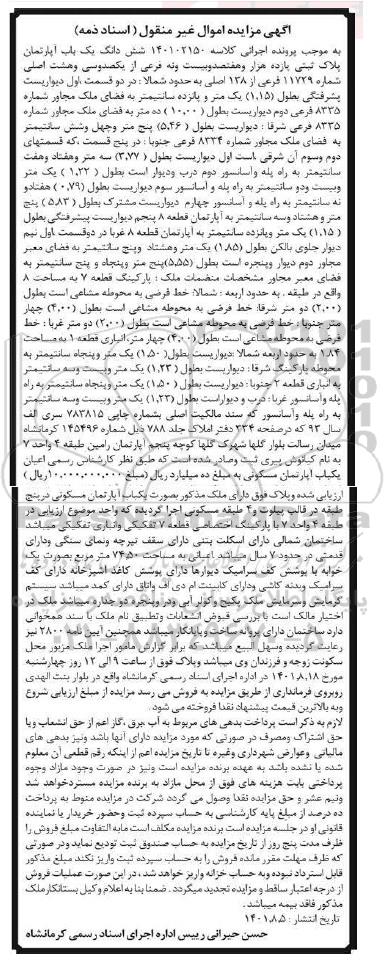 آگهی مزایده اموال غیر منقول ( اسناد ذمه)
به موجب پرونده اجرائی کلاسه ۱۴۰۱۰۲۱۵۰ شش دانگ یک باب آپارتمان
پلاک ثبتی یازده هزار وهفتصدوبیست ونه فرعی از یکصدوسی وهشت اصلی
شماره ۱۱۷۲۹ فرعی از ۱۳۸ اصلی به حدود شمالا : در دو قسمت ،اول دیواریست
پیشرفتگی بطول (۱,۱۵) یک متر و پانزده سانتیمتر به فضای ملک مجاور شماره
۸۳۳۵ فرعی دوم دیواریست بطول ( ۱۰,۰۰ ) ده متر به فضای ملک مجاور شماره
۸۳۳۵ فرعی شرقا : دیواریست بطول ( ۵,۴۶ ) پنج متر وچهل وشش سانتیمتر
به فضای ملک مجاور شماره ۸۳۳۴ فرعی جنوبا : در پنج قسمت ،که قسمتهای
دوم وسوم آن شرقی ،است اول دیواریست بطول (۳,۷۷) سه متر وهفتاد وهفت
سانتیمتر به راه پله وآسانسور دوم درب ودیوار است بطول ( ۱,۲۲ ) یک متر
وبیست ودو سانتیمتر به راه پله و آسانسور سوم دیواریست بطول (۰,۷۹) هفتادو
نه سانتیمتر به راه پله و آسانسور چهارم دیواریست مشترک بطول ( ۵,۸۳ ) پنج
متر و هشتاد وسه سانتیمتر به آپارتمان قطعه ۸ پنجم دیواریست پیشرفتگی بطول
( ۱,۱۵ ) یک متر وپانزده سانتیمتر به آپارتمان قطعه ۸ غربا در دوقسمت ،اول نیم
دیوار جلوی بالکن بطول (۱,۸۵) یک متر وهشتاد وپنج سانتیمتر به فضای معبر
مجاور دوم دیوار وپنجره است بطول (۵,۵۵)پنج متر وپنجاه و پنج سانتیمتر به
فضای معبر مجاور مشخصات منضمات ملک : پارکینگ قطعه ۷ به مساحت ۸
واقع در طبقه . به حدود اربعه : شمالا: خط فرضی به محوطه مشاعی است بطول
(۲,۰۰) دو متر شرقا: خط فرضی به محوطه مشاعی است بطول (۴,۰۰) چهار
متر جنوبا : خط فرضی به محوطه مشاعی است بطول (۲,۰۰) دو متر غربا : خط
فرضی به محوطه مشاعی است بطول (۴,۰۰) چهار متر، انباری قطعه ۱ به مساحت
۱,۸۴ به حدود اربعه شمالا :دیواریست بطول (۱,۵۰) یک متر وپنجاه سانتیمتر به
محوطه پارکینگ شرقا : دیواریست بطول (۱,۲۳) یک متر وبیست وسه سانتیمتر
به انباری قطعه ۲ جنوبا : دیواریست بطول (۱,۵۰) یک متر وپنجاه سانتیمتر به راه
پله وآسانسور غربا : درب و دیواراست بطول (۱,۲۳) یک متر وبیست وسه سانتیمتر
به راه پله وآسانسور که سند مالکیت اصلی بشماره چاپی ۷۸۳۸۱۵ سری الف
سال ۹۳ که درصفحه ۳۳۴ دفتر املاک جلد ۷۸۸ ذیل شماره ۱۴۵۴۹۶ کرمانشاه
میدان رسالت بلوار گلها شهرک گلها کوچه پنجم آپارتمان رامین طبقه ۴ واحد ۷
به نام کیانوش پیری ثبت وصادر شده است که طبق نظر کارشناس رسمی اعیان
یکباب آپارتمان مسکونی به مبلغ ده میلیارد ریال (مبلغ ۱۰,۰۰۰,۰۰۰,۰۰۰ ریال )
ارزیابی شده وپلاک فوق دارای ملک مذکور بصورت یکباب آپارتمان مسکونی درپنج
طبقه در قالب پیلوت و۴ طبقه مسکونی اجرا گردیده که واحد موضوع ارزیابی در
طبقه ۴ واحد ۷ با پارکینگ اختصاصی قطعه ۷ تفکیکی وانباری تفکیکی میباشد
ساختمان شمالی دارای اسکلت بتنی دارای سقف تیرچه ونمای سنگی ودارای
قدمتی در حدود ۷ سال میباشد اعیانی به مساحت ۷۴,۵۰ متر مربع بصورت یک
خوابه با پوشش کف سرامیک دیوارها دارای پوشش کاغذ آشپزخانه دارای کف
سرامیک وبدنه کاشی ودارای کابینت ام دی اف واتاق دارای کمد میباشد سیستم
گرمایش وسرمایش ملک پکیج وکولر آبی ودر وپنجره دو جداره میباشد ملک در
اختیار مالک است با بررسی قبوض انشعابات وتطبیق نام ملک با سند همخوانی
دارد ساختمان دارای پروانه ساخت وپایانکار میباشد همچنین آیین نامه ۲۸۰۰ نیز
رعایت گردیده وسهل البیع میباشد که برابر گزارش مامور اجرا ملک مزبور محل
سکونت زوجه و فرزندان وی میباشد وپلاک فوق از ساعت ۹ الی ۱۲ روز چهارشنبه
مورخ ۱۴۰۱.۸.۱۸ در اداره اجرای اسناد رسمی کرمانشاه واقع در بلوار بنت الهدی
روبروی فرمانداری از طریق مزایده به فروش می رسد مزایده از مبلغ ارزیابی شروع
وبه بالاترین قیمت پیشنهاد نقدا فروخته می شود.
لازم به ذکر است پرداخت بدهی های مربوط به آب ،برق ،گاز اعم از حق انشعاب ویا
حق اشتراک ومصرف در صورتی که مورد مزایده دارای آنها باشد ونیز بدهی های
مالیاتی وعوارض شهرداری وغیره تا تاریخ مزایده اعم از اینکه رقم قطعی آن معلوم
شده یا نشده باشد به عهده برنده مزایده است ونیز در صورت وجود مازاد وجوه
پرداختی بابت هزینه های فوق از محل مازاد به برنده مزایده مسترد‌خواهد شد
ونیم عشر و حق مزایده نقدا وصول می گردد شرکت در مزایده منوط به پرداخت
ده درصد از مبلغ پایه کارشناسی به حساب سپرده ثبت وحضور خریدار یا نماینده
قانونی او در جلسه مزایده است برنده مزایده مکلف است مابه التفاوت مبلغ فروش را
ظرف مدت پنج روز از تاریخ مزایده به حساب صندوق ثبت تودیع نماید ودر صورتی
که ظرف مهلت مقرر مانده فروش را به حساب سپرده ثبت واریز نکند مبلغ مذکور
قابل استرداد نبوده وبه حساب خزانه واریز خواهد شد ، در این صورت عملیات فروش
از درجه اعتبار ساقط و مزایده تجدید میگردد . ضمنا بنا به اعلام وکیل بستانکار‌ملک
مذکور فاقد بیمه میباشد.
تاریخ انتشار : ۱۴۰۱.۸.۵
حسن حیرانی رییس اداره اجرای اسناد رسمی کرمانشاه